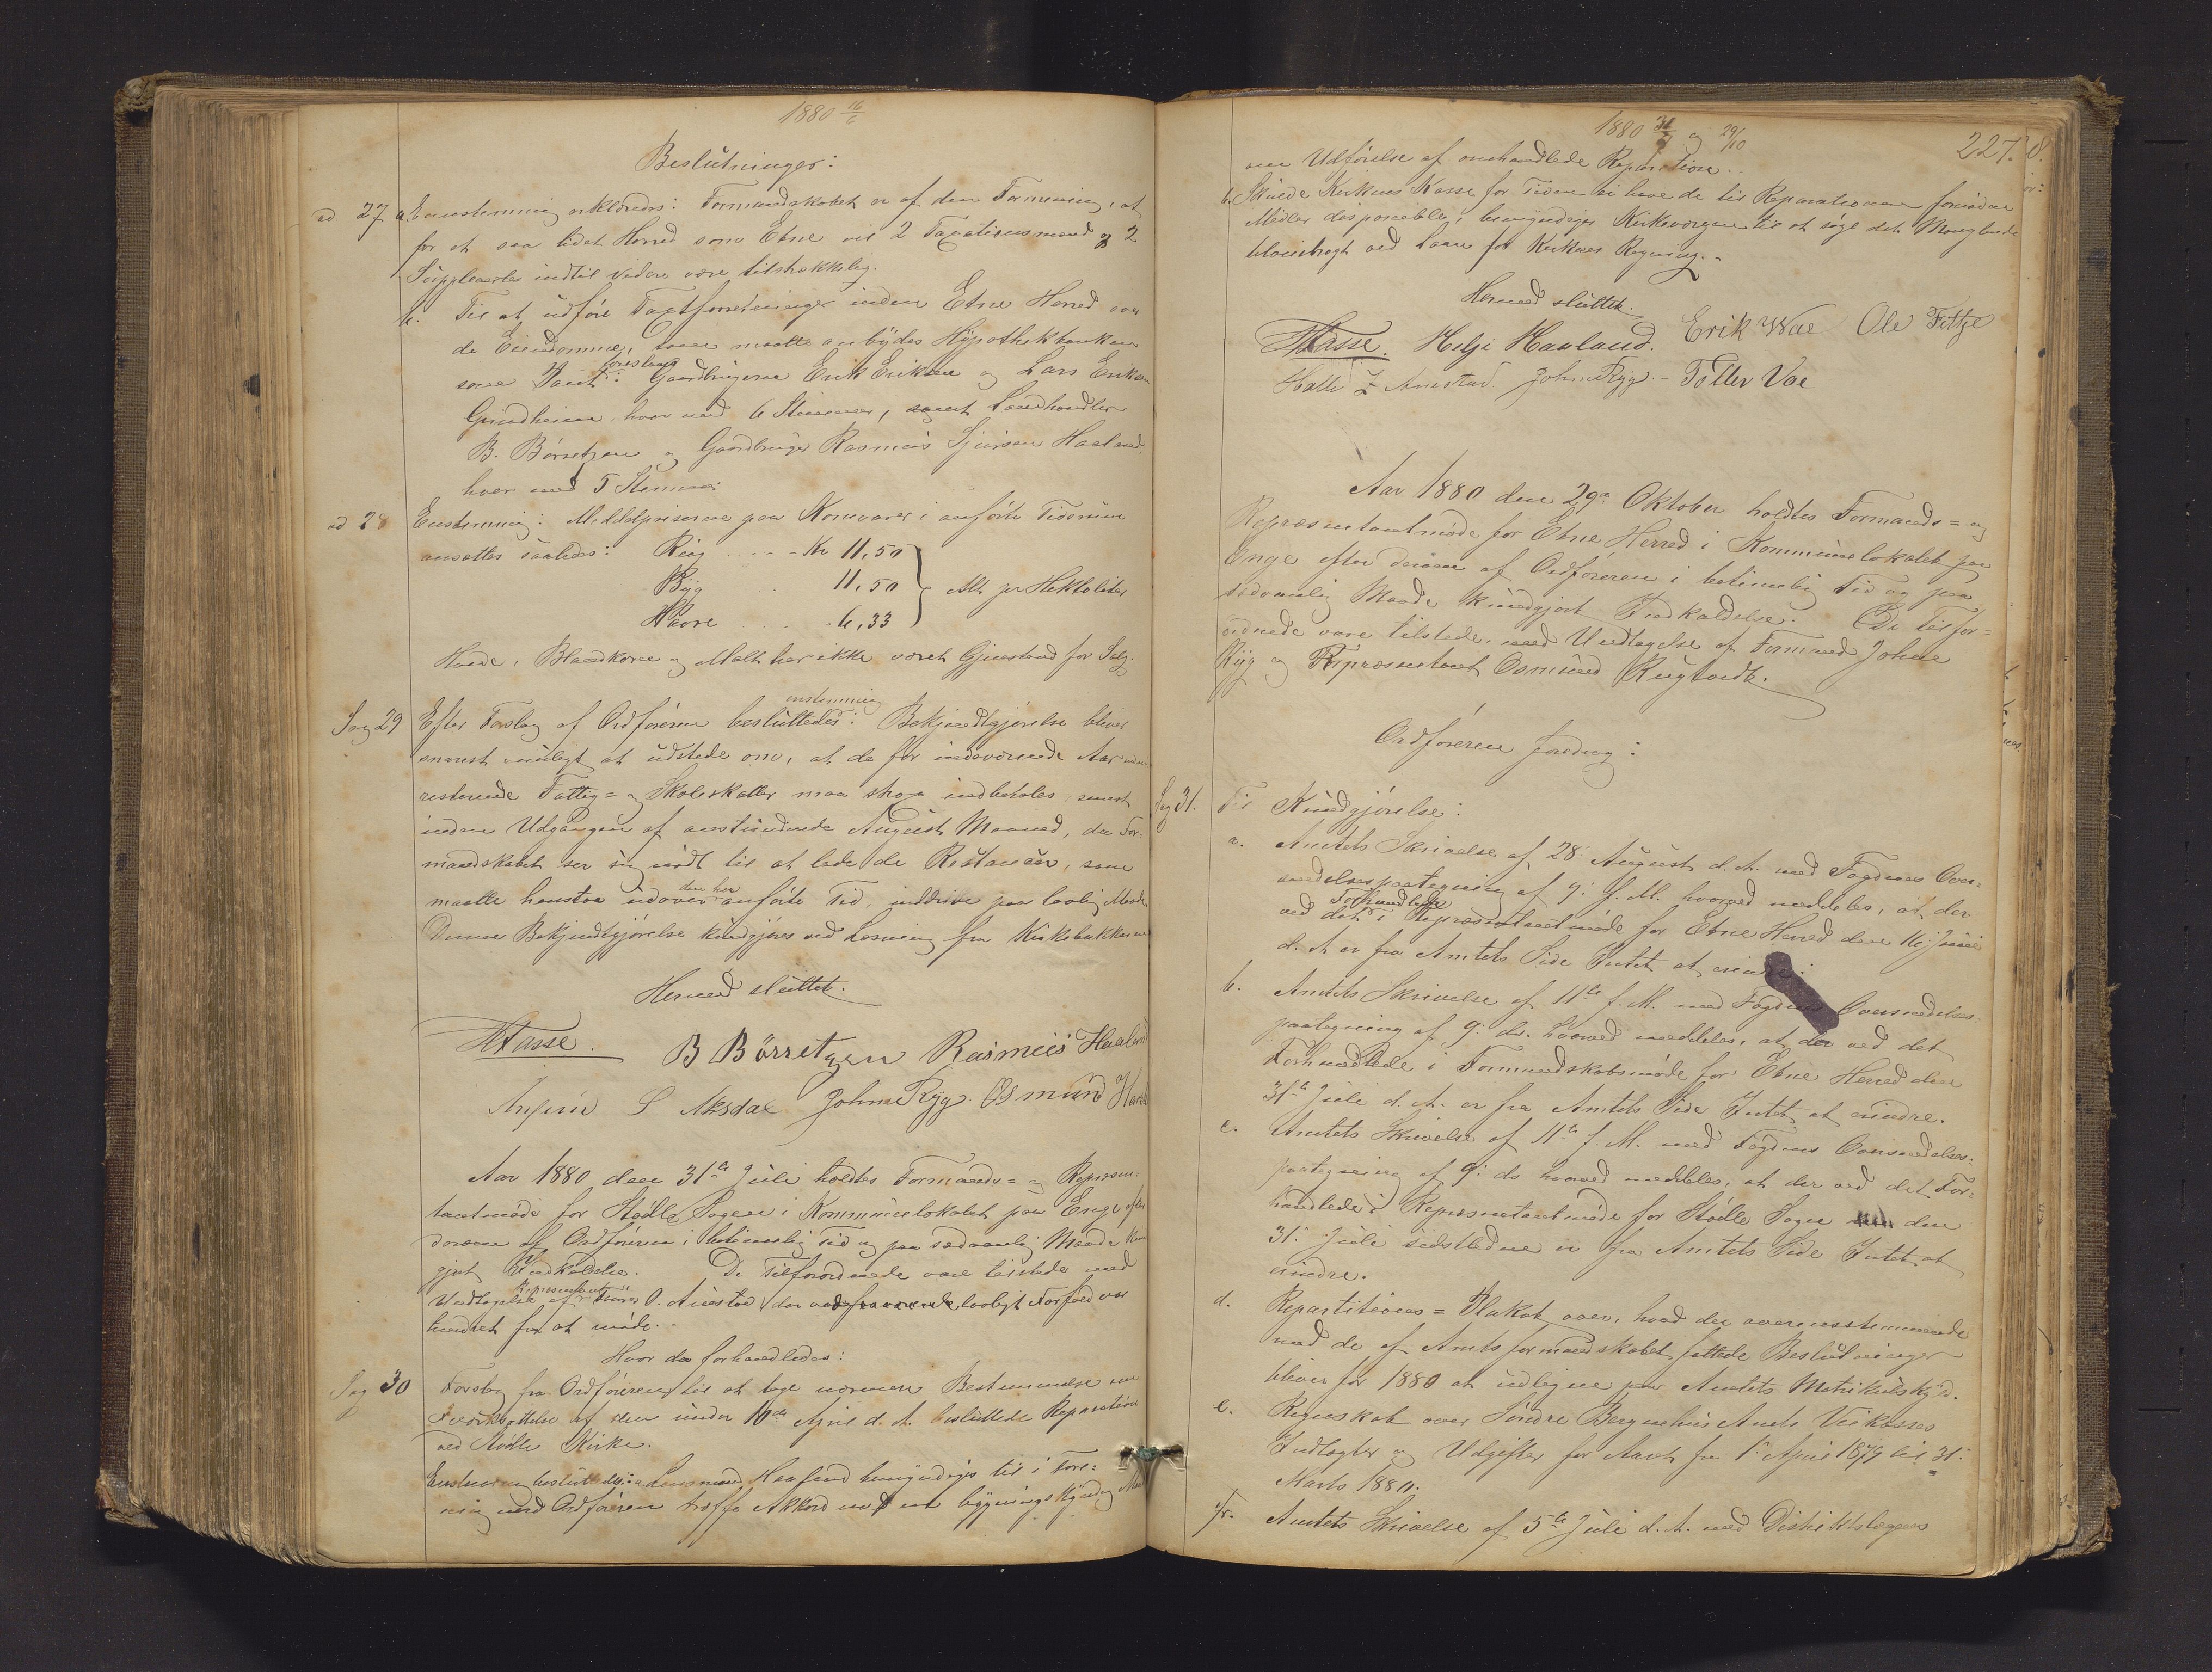 1880 16/6
Beslutninger:
ad 27 a. Eenstemmig erklæredes: Formandskabet er af den Formening, at
for et saa lidet Herred som Etne vil 2 Taxationsmænd og 2
Suppleanter indtil videre være tilstrækkelig.
b. Til at udføre Taxtforretninger inden Etne Herred over
de Eiendomme, som maatte anbydes Hypothekbanken
som Pant foreslaaes: Gaardbrugerne Erik Eriksen og Lars Eriksen
Grindheim hver med 6 Stemmer, samt Landhandler
B. Børretzen og Gaardbruger Rasmus Sjursen Haaland,
hver med 5 Stemmer.
ad 28 Eenstemmig: Middelpriserne paa Kornvarer i anførte Tidsrum
ansættes saaledes: Rug - - - Kr 11,50
Byg 11,50 Alt per Hektoliter
Havre - - 6,33
Hvede, Blandkorn og Malt har ikke været Gjenstand for Salg.
Sag 29 Efter Forslag af Ordføreren besluttedes enstemmig: Bekjendtgjørelse bliver
snarest muligt at udstede om, at de for indeværende Aar
resterende Fattig- og Skoleskatter maa ske indbetales senest
inden Udgangen af anstundende August Maaned, da For-
mandskabet ser sig nødt til at lade de Restancer, som
maatte henstaa udover den her anførte Tid, inddrive paa lovlig Maade
Denne Bekjendtgjørelse kundgjøres ved Læsning fra Kirkebakken
Hermed sluttet.
Hasse. B Børretzen Rasmus Haaland
S Aksdal John Ryg. Osmund
Aar 1880 den 31te Juli holdtes Formands- og Repræsen-
tantmøde for Stødle Sogn i Kommunelokalet paa Enge efter
derom af Ordføreren i betimelig Tid og paa sædvanlig Maade kund
gjort Indkaldelse. De Tilforordnede vare tilstede med
Undtagelse af Repræsentant O. Austad der ved lovligt Forfald var
hindret fra at møde.
Hvor da forhandledes:
Sag 30 Forslag fra Ordføreren til at tage nærmere Bestemmelse om
Iværksættelse af den under 10de April d. A. besluttede Reparation
ved Stødle Kirke.
Enstemmig besluttedes: a. Lensmand Haaland bemyndiges til i Fore-
ning med Ordføreren træffe Akkord med en bygningskyndig Mand
1880 31/7 og 29/10
227.
om Udførelse af omhandlede Reparation.
b. Skulde Kirkens Kasse for Tiden ei have de til Reparationen fornødne
Midler disponible, bemyndiges Kirkeværgen til at søge det Manglende
tilveiebragt ved Laan for Kirkens Regning.
Hermed sluttet.
Hasse. Helje Haaland. Erik Wae Ole Fitje
Halle Austad John Ryg. Tollev Vae
Aar 1880 den 29de Oktober holdtes Formands- og
Repræsentantmøde for Etne Herred i Kommunelokalet paa
Enge efter derom af Ordføreren i betimelig Tid og paa
sædvanlig Maade kundgjort Indkaldelse. De Tilfor-
ordnede vare tilstede med Undtagelse af Formand John
Ryg og Repræsentant Osmund Rugtvedt.
Ordføreren foredrog:
Sag 31. Til Kundgjørelse:
a. Amtets Skrivelse af 28. August d. A. med Fogdens Over-
sendelsespaategning af 9. f. M. hvorved meddeles, at der
ved det Forhandlede i Repræsentantmøde for Etne Herred den 16. Juni
d. A. er fra Amtets Side Intet at erindre.
b. Amtets Skrivelse af 11te f. M. med Fogdens Oversendelses-
paategning af 9. ds. hvorved meddeles, at der ved det
Forhandlede i Formandskabsmøde for Etne Herred den
31te Juli d. A. er fra Amtets Side Intet at erindre.
c. Amtets Skrivelse af 11te f. M. med Fogdens Oversendelses-
paategning af 9. ds hvorved meddeles, at der ved det For-
handlede i Repræsentantmøde for Stødle Sogn den
31. Juli sidstleden er fra Amtets Side Intet at
erindre.
d. Repartitions-Plakat over, hvad der overensstemmende
med de af Amtsformandskabet fattede Beslutninger
bliver for 1880 at udligne paa Amtets Matrikulskyld.
e. Regnskab over Søndre Bergenhus Amts Veikasses
Indtægter og Udgifter for Aaret fra 1te April 1879 til 31.
Marts 1880.
f. Amtets Skrivelse af 5te Juli d. A. med Distriktslægens